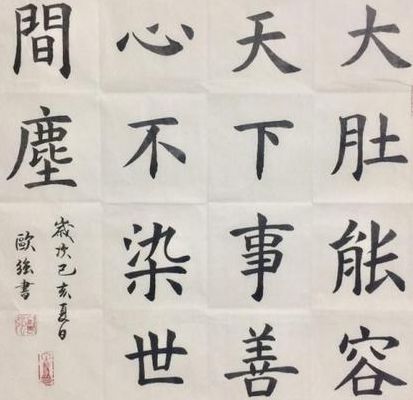 大肚能容
天下事善
心不染世
間塵
歲次己亥夏日
歐強書